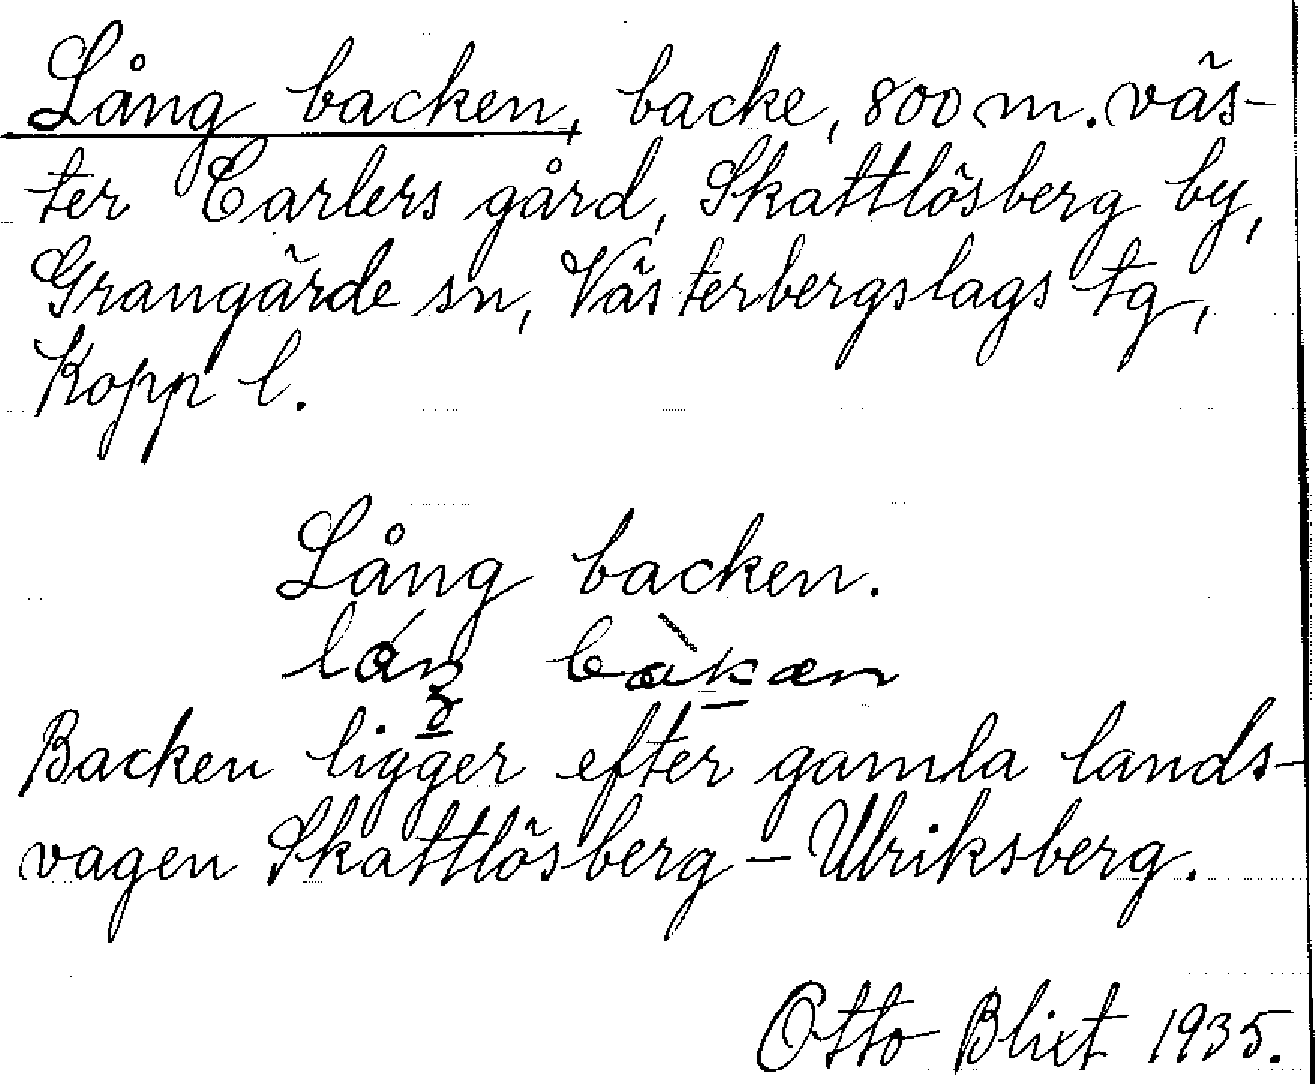 Lång backen, backe, 800 m. väs-
ter Carlers gård, Skattlösberg by,
Grangärde sn, Västerbergslags tg,
Kopp l.
Lång backen.
bàkæn
Backen ligger efter gamla lands-
vagen Skattlösberg – Ulriksberg.
Otto Blixt 1935.